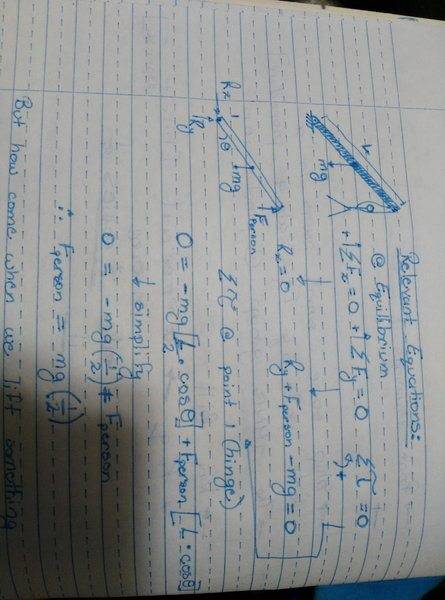 Relevant Equations:
@ Equilibrium
+ ΣFx = 0 + ΣFy = 0 Στ = 0
mg
L
Rx = 0 Ry + Fperson - mg = 0
Rx
1
Ry
θ
mg
Fperson
Στ @ point 1 (hinge)
0 = -mg[L/2 · cosθ] + Fperson[L · cosθ]
↓ simplify
0 = -mg(1/2) + Fperson
∴ Fperson = mg(1/2)
But how come when we lift something